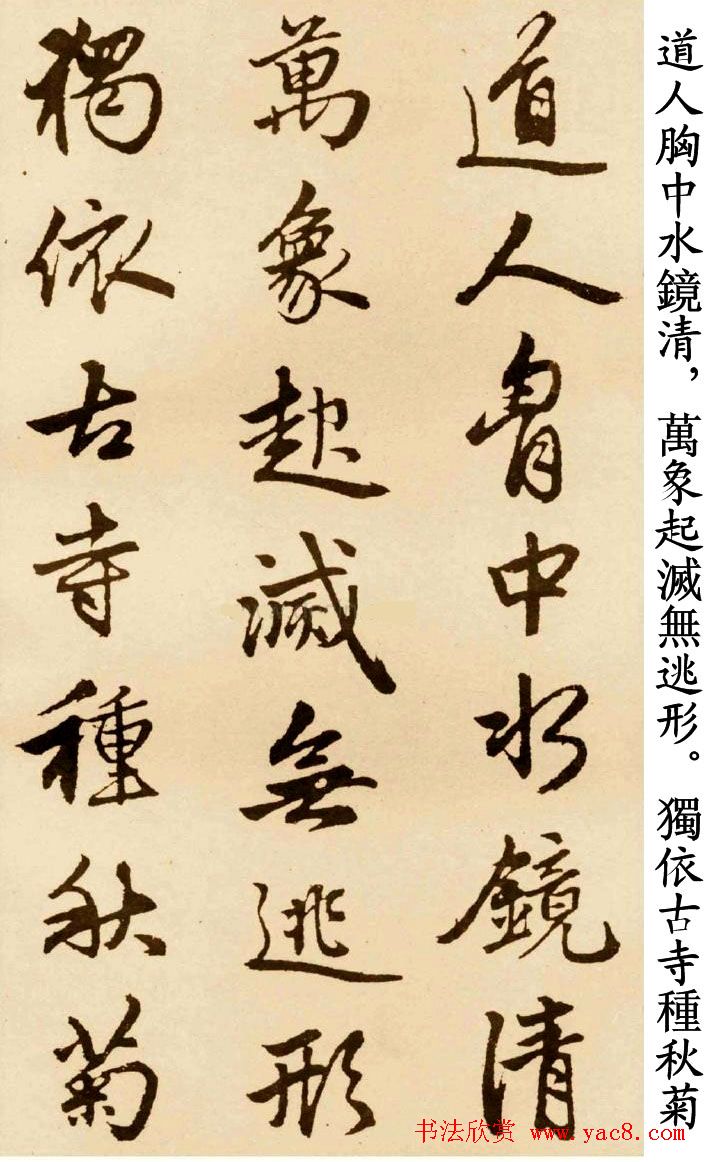 道人胷中水鏡清
萬象起滅無逃形
獨依古寺種秋菊
道人胸中水鏡清，萬象起滅無逃形。獨依古寺種秋菊
书法欣赏 www.yac8.com